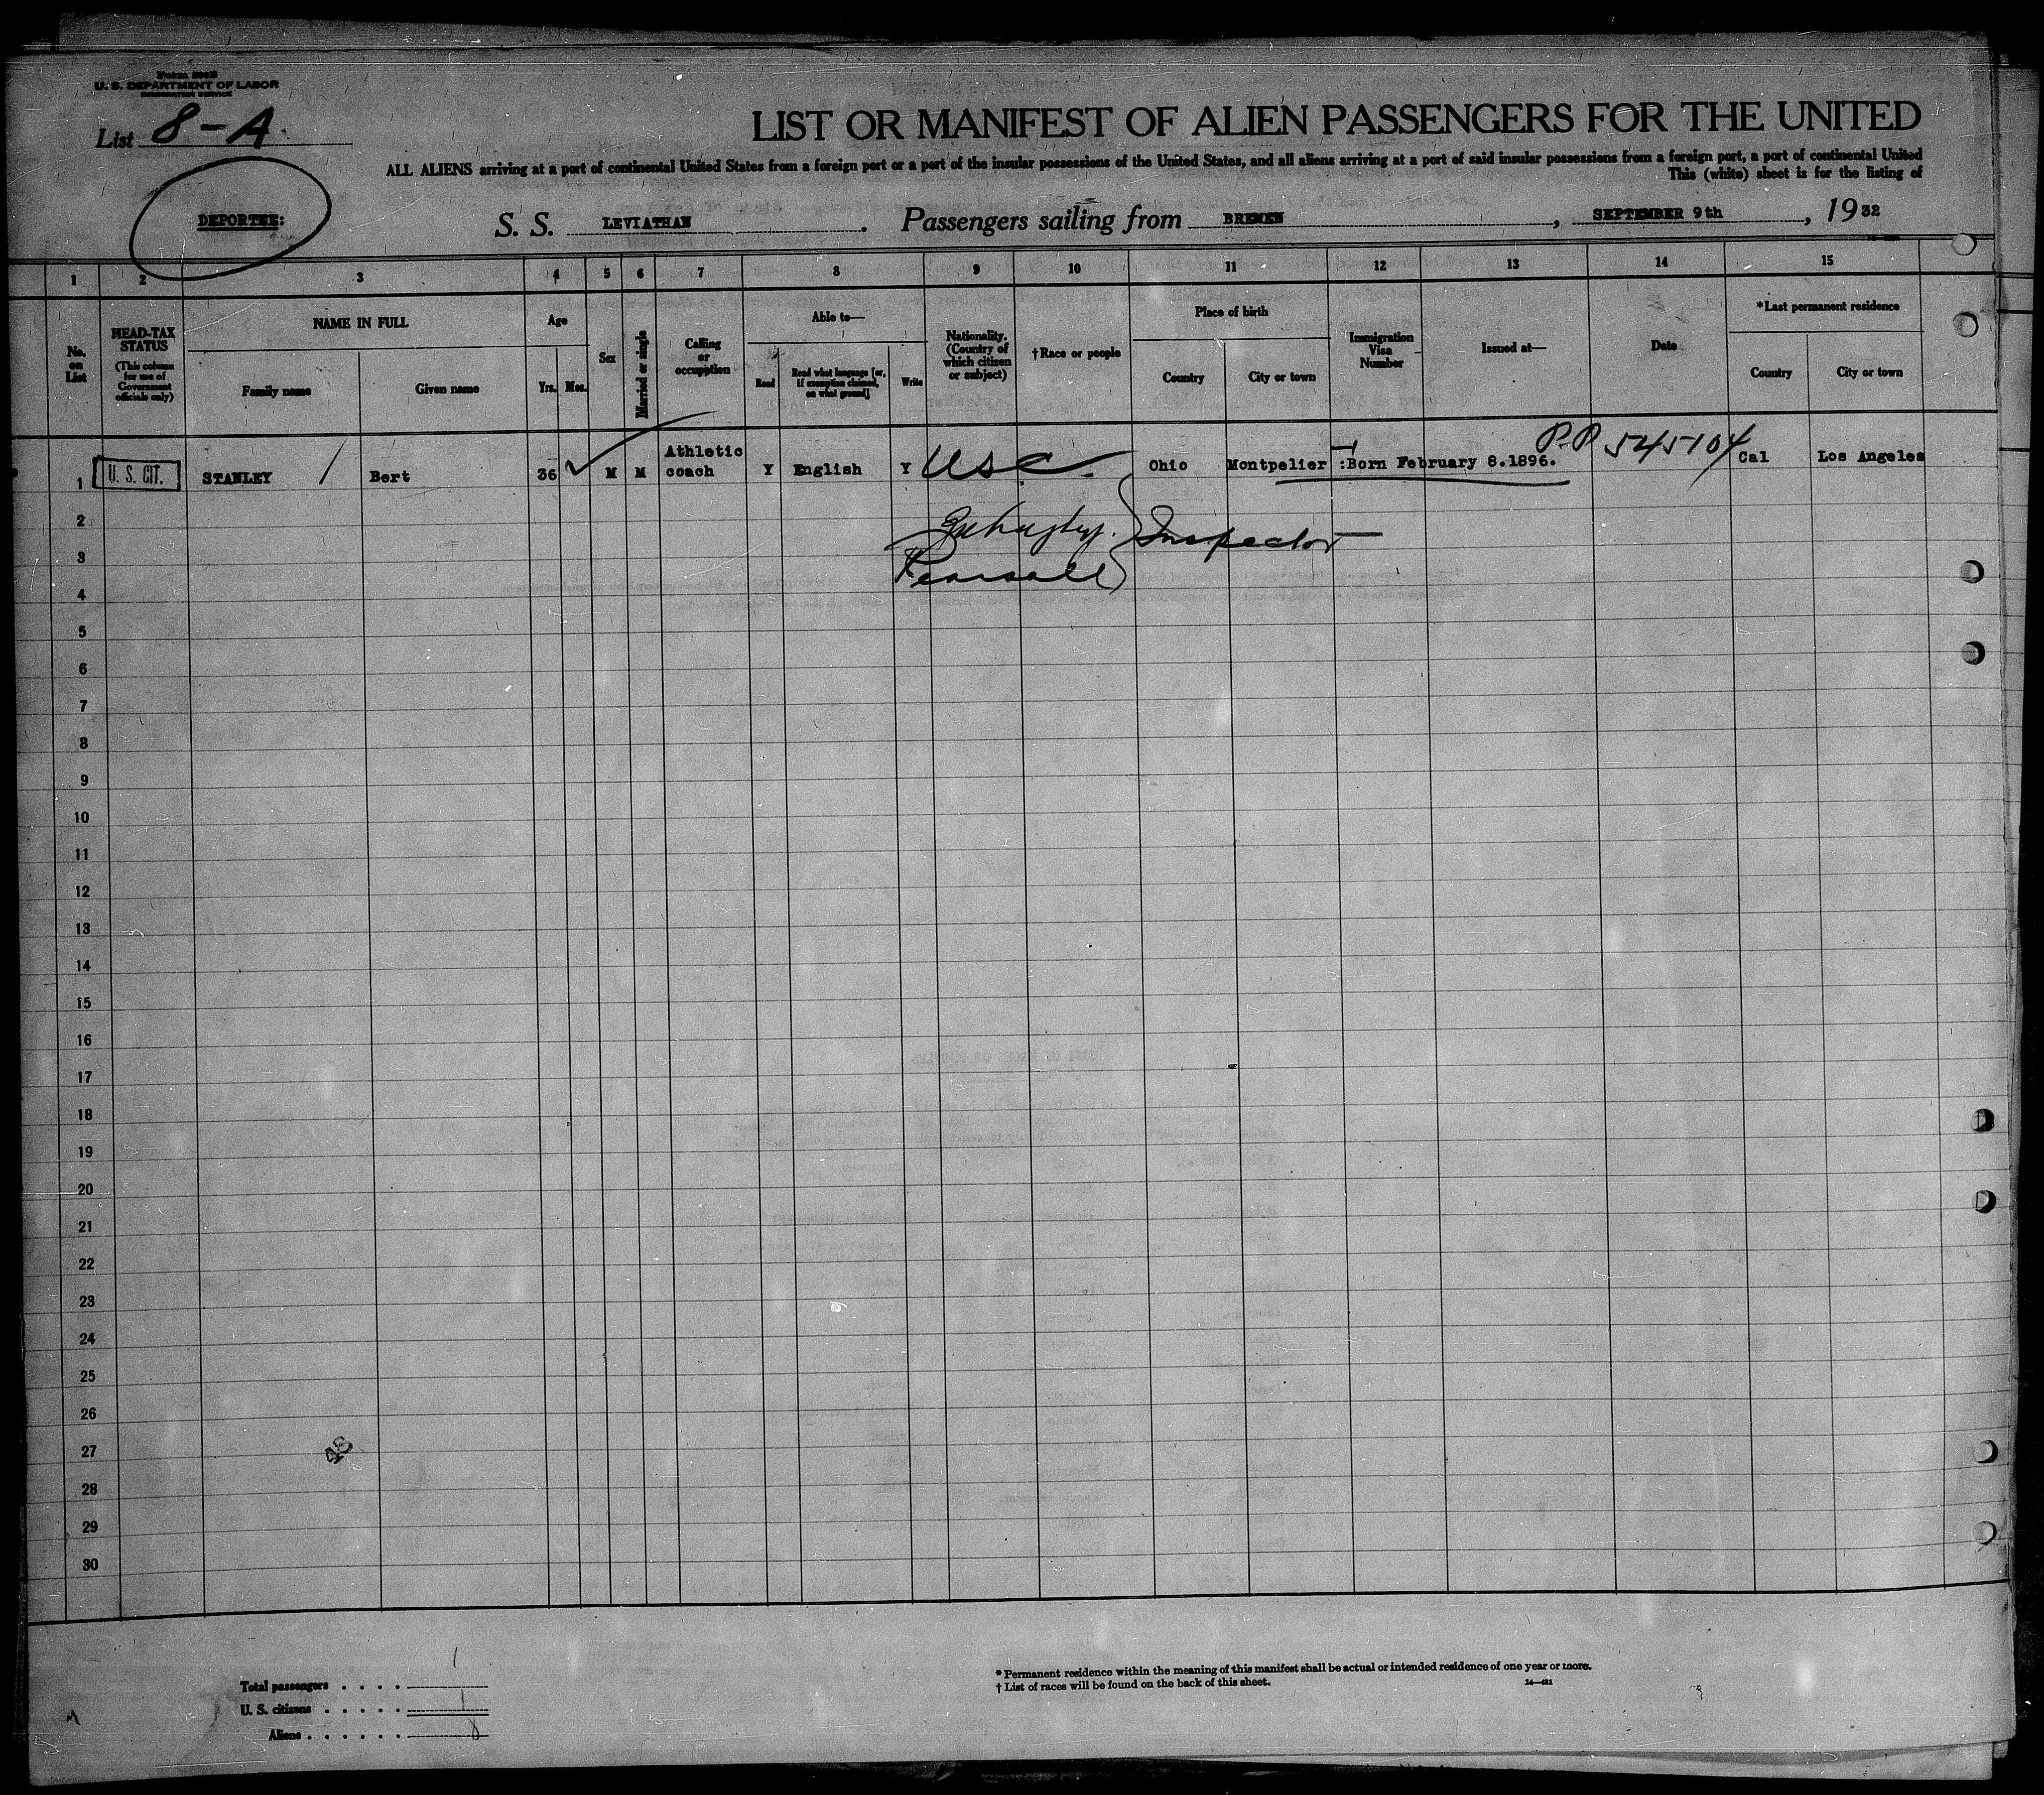 Form 500B
U. S. DEPARTMENT OF LABOR
IMMIGRATION SERVICE
List 8-A.
LIST OR MANIFEST OF ALIEN PASSENGERS FOR THE UNITED
ALL ALIENS arriving at a port of continental United States from a foreign port or a port of the insular possessions of the United States, and all aliens arriving at a port of said insular possessions from a foreign port, a port of continental United
This (white) sheet is for the listing of
DEPORTEE:
S. S. LEVIATHAN. Passengers sailing from BREMEN, SEPTEMBER 9th, 1932
1 2 3 4 5 6 7 8 9 10 11 12 13 14 15
No. on List
HEAD-TAX STATUS
(This column for use of Government officials only)
NAME IN FULL
Family name
Given name
Age
Yrs.
Mos.
Sex
Married or single
Calling or occupation
Able to—
Read
Read what language [or, if exemption claimed, on what ground]
Write
Nationality. (Country of which citizen or subject)
†Race or people
Place of birth
Country
City or town
Immigration Visa Number
Issued at—
Date
*Last permanent residence
Country
City or town
1 U. S. CIT. STANLEY / Bert 36 M M Athletic coach Y English Y USC Ohio Montpelier :Born February 8.1896. P.P 545104 Cal Los Angeles
Inspector
Pearsall
2
3
4
5
6
7
8
9
10
11
12
13
14
15
16
17
18
19
20
21
22
23
24
25
26
27
28
29
30
Total passengers . . . . 1
U. S. citizens . . . . . 1
Aliens . . . . . . 0
* Permanent residence within the meaning of this manifest shall be actual or intended residence of one year or more.
† List of races will be found on the back of this sheet.